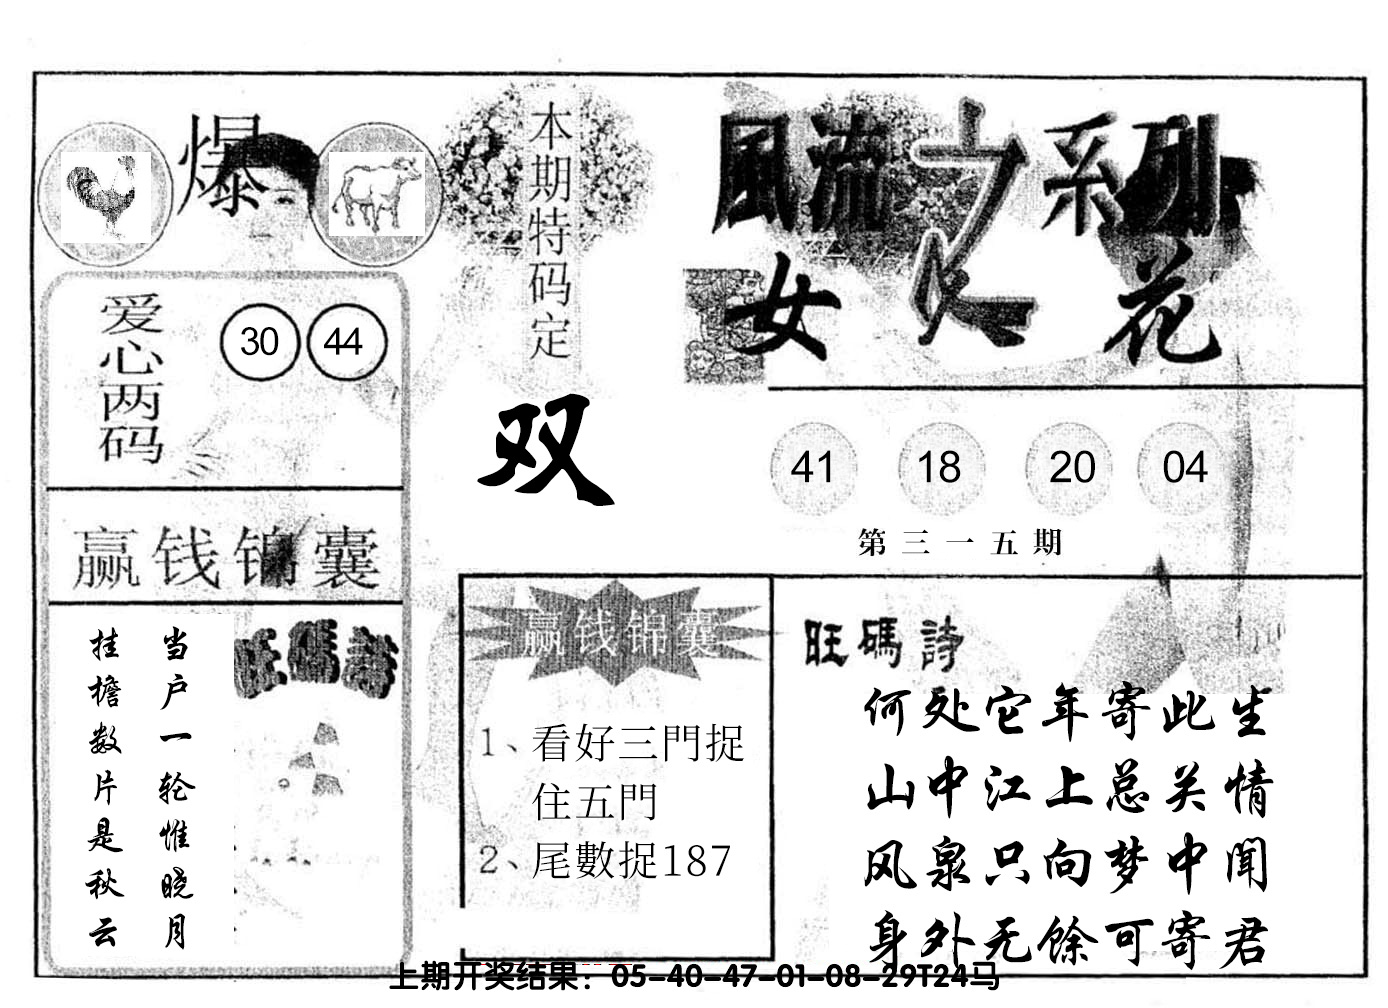 爆
本期特码定
双
爱心两码
30 44
赢钱锦囊
当户一轮惟晓月
挂檐数片是秋云
旺碼詩
風流之系列
女人花
41 18 20 04
第三一五期
赢钱锦囊
1、看好三門捉
住五門
2、尾數捉187
旺碼詩
何处它年寄此生
山中江上总关情
风泉只向梦中闻
身外无馀可寄君
上期开奖结果：05-40-47-01-08-29T24马